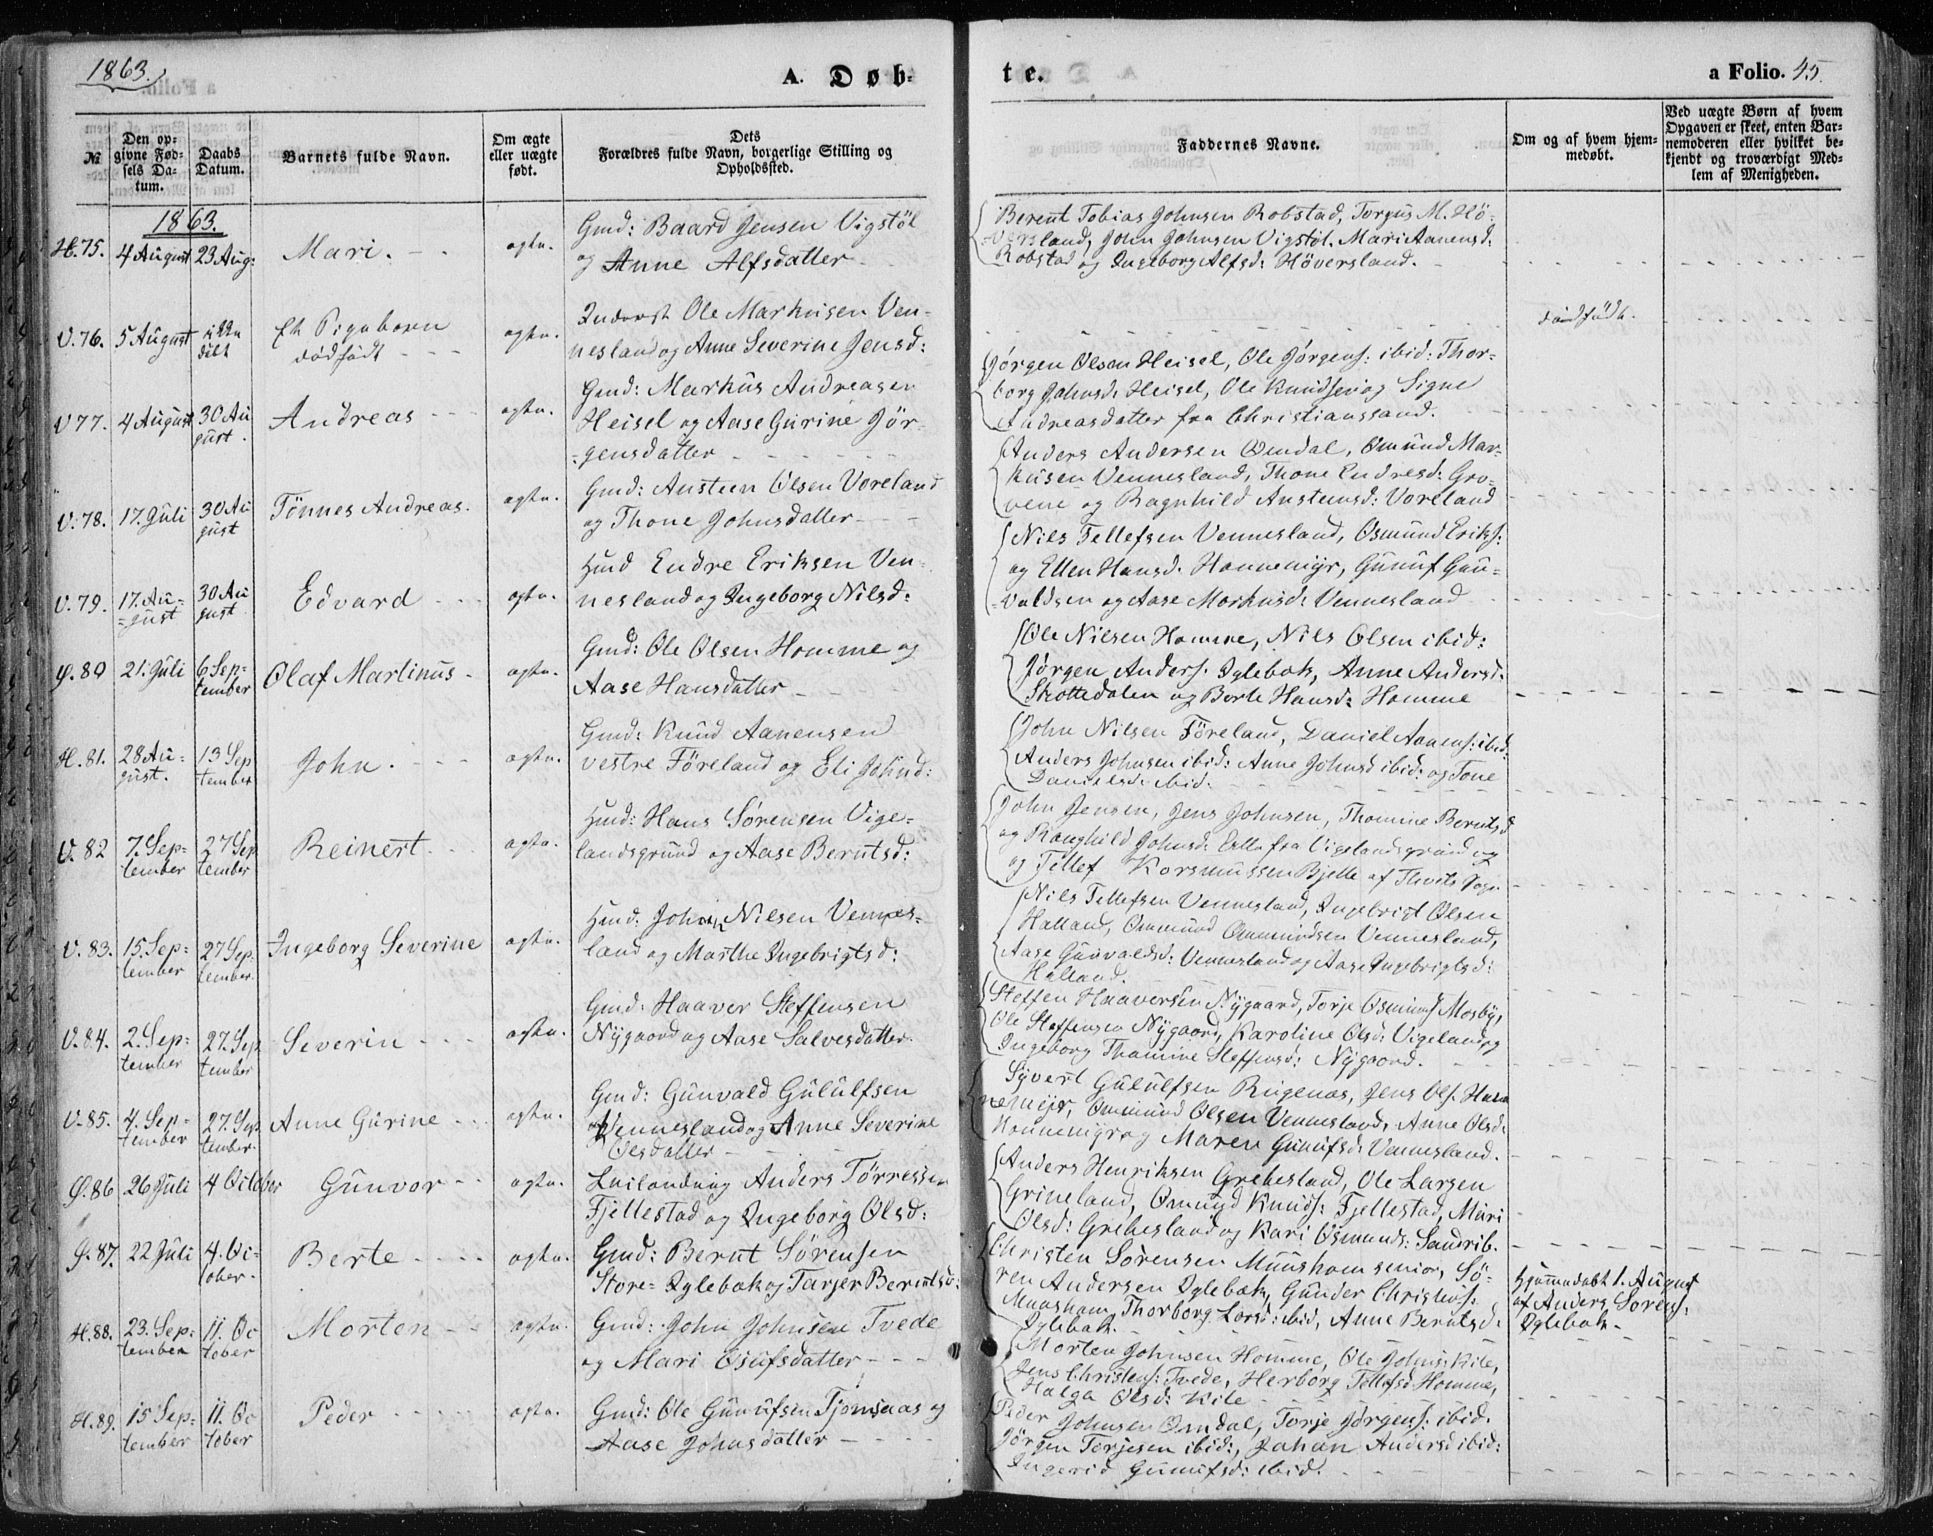 1863.
A. Døb-
te.
a Folio. 45.
№
Den op-
givne Fød-
sels Da-
tum.
Daabs
Datum.
Barnets fulde Navn.
Om ægte
eller uægte
født.
Dets
Forældres fulde Navn, borgerlige Stilling og
Opholdssted.
Faddernes Navne.
Om og af hvem hjem-
medøbt.
Ved uægte Børn af hvem
Opgaven er skeet, enten Bar-
nemoderen eller hvilket be-
kjendt og troværdigt Med-
lem af Menigheden.
1863.
H.75. 4 August 23 Aug: Mari. ægte.
Gmd: Baard Jensen Vigstøl
og Anne Alfsdatter
Berent Tobias Johnsen Robstad, Torgus M. Hö-
versland, John Johnsen Vigstøl. Mari Aanensd:
Robstad og Ingeborg Alfsd: Höversland.
V.76. 5 August ikke
døbt
Et Pigebarn
dødfødt
ægte.
Inderst Ole Markusen Ven-
nesland og Anne Severine Jensd:
dødfødt.
V.77. 4 August 30 Au
gust.
Andreas ægte.
Gmd: Markus Andreasen
Heisel og Aase Gurine Jör-
gensdatter
Jørgen Olsen Heisel, Ole Jørgens: ibid: Thor-
borg Johnsd: Heisel, Ole Knudsen og Signe
Andreasdatter fra Christianssand.
V.78. 17. Juli 30 Au
gust
Tönnes Andreas. ægte.
Gmd: Austeen Olsen Voreland
og Thone Johnsdatter
Anders Andersen Omdal, Omund Mar-
kusen Vennesland, Thone Endresd: Gro-
vene og Ragnhild Austensd: Voreland
V.79. 17. Au-
gust
30 Au
gust
Edvard ægte.
Hmd Endre Eriksen Ven-
nesland og Ingeborg Nilsd:
Nils Tellefsen Vennesland, Osmund Eriks:
og Ellen Hansd. Honnemyr, Gunuf Gun-
valdsen og Aase Markusd: Vennesland
Ø.80 21. Juli 6 Sep-
tember
Olaf Martinus ægte.
Gmd: Ole Olsen Homme og
Aase Hansdatter
Ole Nilsen Homme, Nils Olsen ibid:
Jørgen Anders: Iglebæk, Anne Andersd:
Skottedalen og Berte Hansd: Homme
H.81. 28 Au-
gust.
13 Sep
tember
John. ægte.
Gmd: Knud Aanensen
vestre Föreland og Eli Johnd:
John Nilsen Föreland, Daniel Aanens: ibid:
Anders Johnsen ibid: Anne Johnsd ibid: og Tone
Danielsd: ibid.
V.82 7. Sep-
tember
27 Sep
tember
Reinert. ægte.
Hmd: Hans Sörensen Vige-
landsgrund og Aase Berntsd:
John Jensen, Jens Johnsen, Thomine Berntsd
og Ragnhild Johnsd: fra Vigelandsgrund og
og Tellef Bjelle af Sogn
V.83. 15. Sep-
tember
27 Sep
tember.
Ingeborg Severine ægte.
Hmd: John Nilsen Vennes-
land og Marthe Ingebrigtsd:
Nils Tellefsen Vennesland, Ingebrigt Olsen
Halland, Ommund Ommundsen Vennesland,
Aase Gunvaldsd: Vennesland og Aase Ingebrigtsd:
Halland.
V.84. 2. Sep-
tember
27. Sep
tember
Severin ægte.
Gmd: Haaver Steffensen
Nygaard og Aase Salvesdatter.
Steffen Haaversen Nygaard, Torje Osmunds Mosby,
Ole Steffensen Nygaard, Karoline Olsd: Vigeland og
Ingeborg Thomine Steffensd: Nygaard.
V.85. 4. Sep-
tember
27. Sep
tember.
Anne Gurine ægte.
Gmd: Gunvald Gulufsen
Vennesland og Anne Severine
Olsdatter
Syvert Gulufsen Rugenæs, Jens Ols. Hann
nemyr, Ommund Olsen Vennesland, Anne Olsd:
Honnemyr og Maren Gunufsd: Vennesland.
Ø.86 26 Juli 4 October Gunvor ægte.
Leilænding Anders Törressen
Fjellestad og Ingeborg Olsd:
Anders Henriksen Grebesland, Ole Larsen
Grineland, Omund Knuds: Fjellestad, Mari
Olsd: Grebesland og Kari Osmunds: Sandrib.
Ø.87. 22 Juli 4. Oc-
tober.
Berte ægte.
Gmd: Bernt Sörensen
Store- Iglebæk og Tarjer Berntsd:
Christen Sörensen Muusham senior, Sö-
ren Andersen Iglebæk, Gunder Christens:
Muusham, Thorborg Larsd: ibid, Anne Berntsd:
Iglebæk.
Hjemmedøbt 1. August
af Anders Sorens:
Iglebæk.
H.88. 23. Sep-
tember
11. Oc
tober
Morten ægte.
Gmd: John Johnsen Tvede
og Mari Osufsdatter
Morten Johnsen Homme, Ole Johns: Kile,
Jens Christens: Tvede, Herborg Tellefsd Homme,
Halga Olsd: Kile
H.89. 15 Sep-
tember
11. Oc
tober
Peder ægte.
Gmd: Ole Gunufsen Tjomsaas og
Aase Johnsdatter
Peder Johnsen Omdal, Torje Jørgens: ibid.
Jörgen Terjesen ibid:, Johan Andersd ibid:
Ingerid Gunufsd: ibid.